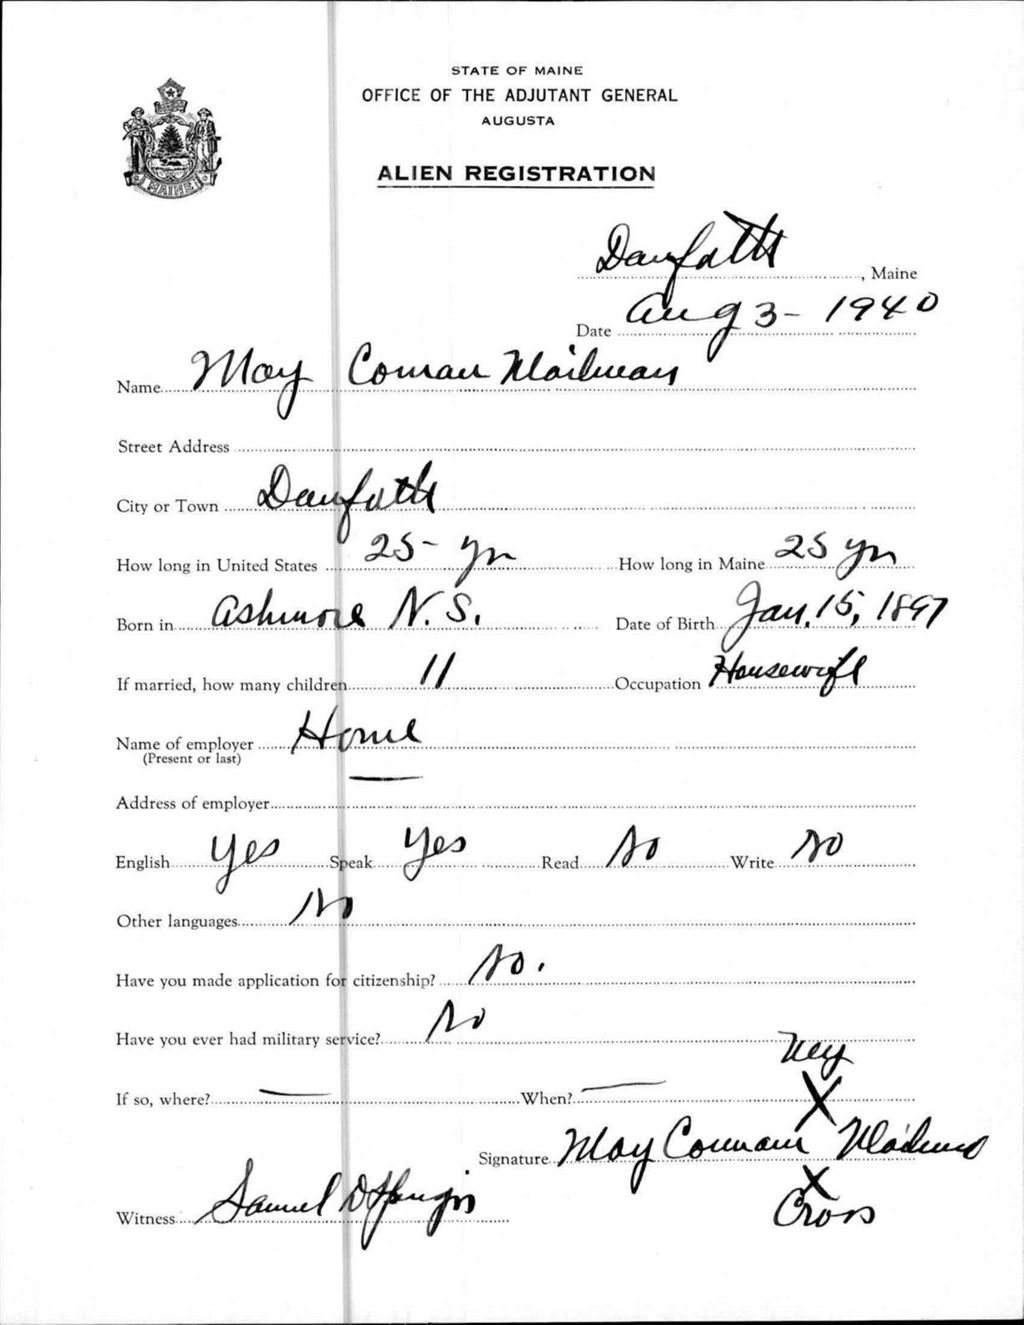 STATE OF MAINE
OFFICE OF THE ADJUTANT GENERAL
AUGUSTA
MAINE
ALIEN REGISTRATION
Danfoth, Maine
Date Aug 3 - 1940
Name May Mailman
Street Address
City or Town Danfoth
How long in United States 25 - yr How long in Maine 25 yr
Born in Ashmore N.S. Date of Birth Jan. 15, 1897
If married, how many children 11 Occupation Housewife
Name of employer Home
(Present or last)
Address of employer
English Yes Speak Yes Read No Write No
Other languages No
Have you made application for citizenship? No.
Have you ever had military service? No
If so, where? — When? —
X
Signature May
X
Witness Samuel D
Cross